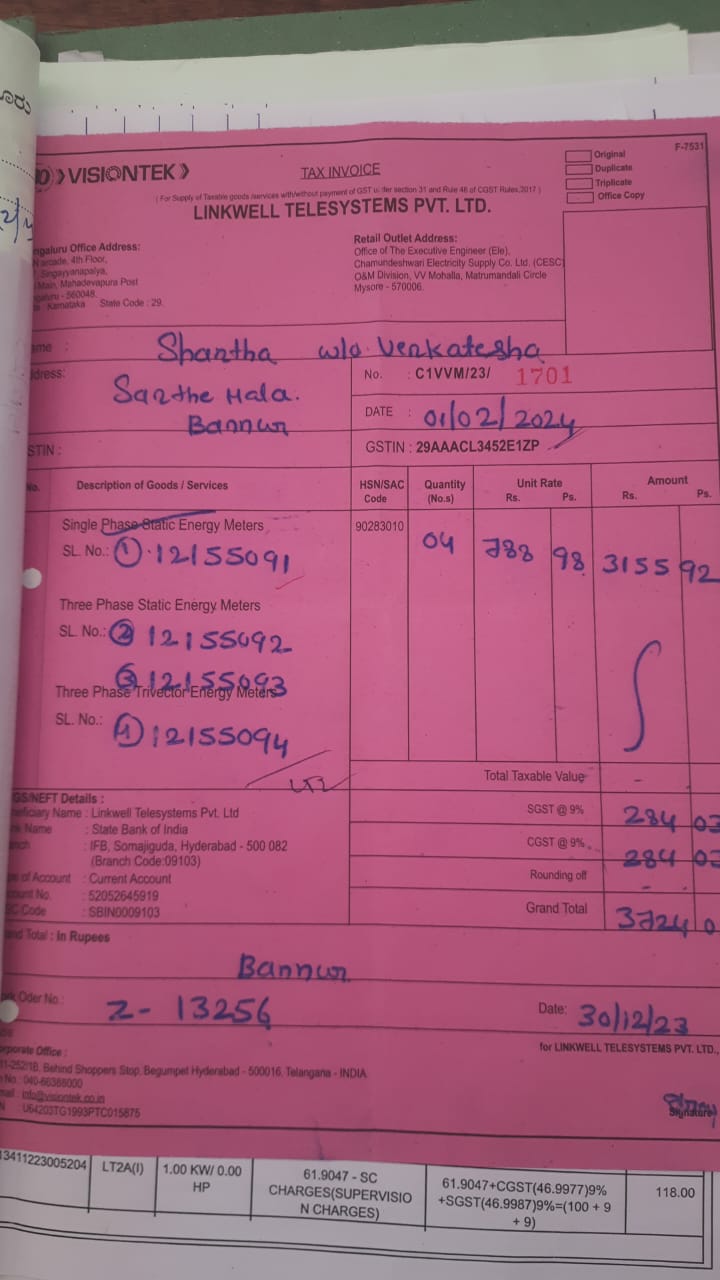 VISIONTEK
TAX INVOICE
Original
Duplicate
Triplicate
Office Copy
F-7531
( For Supply of Taxable goods /services with/without payment of GST under section 31 and Rule 46 of CGST Rules,2017 )
LINKWELL TELESYSTEMS PVT. LTD.
ngaluru Office Address:
arcade, 4th Floor,
Singayyanapalya,
Main, Mahadevapura Post
galuru - 560048.
Karnataka State Code : 29.
Retail Outlet Address:
Office of The Executive Engineer (Ele),
Chamundeshwari Electricity Supply Co. Ltd. (CESC)
O&M Division, VV Mohalla, Matrumandali Circle
Mysore - 570006.
ame : Shantha w/o Venkatesha
dress: Santhe Mala.
Bannur
No. : C1VVM/23/ 1701
DATE : 01/02/2024
STIN :
GSTIN : 29AAACL3452E1ZP
No. Description of Goods / Services HSN/SAC Code Quantity (No.s) Unit Rate Rs. Ps. Amount Rs. Ps.
Single Phase Static Energy Meters 90283010 04 788 98 3155 92
SL. No.: 1 12155091
Three Phase Static Energy Meters
SL. No.: 2 12155092
3 12155093
Three Phase Trivector Energy Meters
SL. No.: 4 12155094
Total Taxable Value -
GS/NEFT Details :
eficiary Name : Linkwell Telesystems Pvt. Ltd
Name : State Bank of India
nch : IFB, Somajiguda, Hyderabad - 500 082
(Branch Code:09103)
of Account : Current Account
ount No. : 52052645919
Code : SBIN0009103
SGST @ 9% 284 03
CGST @ 9% 284 03
Rounding off -
Grand Total 3724 0
and Total : In Rupees
Bannur
Oder No.: Z- 13256
Date: 30/12/23
for LINKWELL TELESYSTEMS PVT. LTD.,
orporate Office :
11-252/1B, Behind Shoppers Stop, Begumpet Hyderabad - 500016, Telangana - INDIA
No : 040-66388000
mail : info@visiontek.co.in
N U64203TG1993PTC015875
Signature
13411223005204 LT2A(I) 1.00 KW/ 0.00 HP 61.9047 - SC CHARGES(SUPERVISIO N CHARGES) 61.9047+CGST(46.9977)9% +SGST(46.9987)9%=(100 + 9 + 9) 118.00